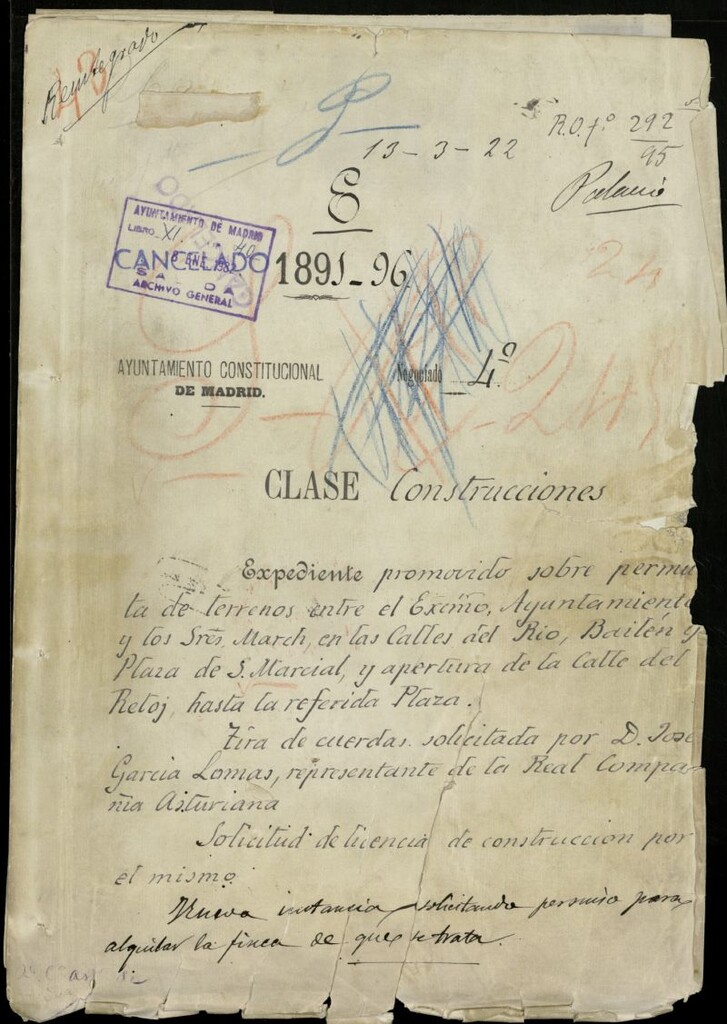 Reintegrado
13-3-22
R.O. fº 292
95
Palacio
E
AYUNTAMIENTO DE MADRID
LIBRO XI
8 ENE. 1982
CANCELADO
ARCHIVO GENERAL
1891-96
24
AYUNTAMIENTO CONSTITUCIONAL
DE MADRID.
Negociado 4º
CLASE Construcciones
Expediente promovido sobre permu
ta de terrenos entre el Excmo. Ayuntamiento
y los Sres. March, en las Calles del Rio, Bailén y
Plaza de S. Marcial, y apertura de la Calle del
Reloj, hasta la referida Plaza.
Tira de cuerdas solicitada por D. José
Garcia Lomas, representante de la Real Compa
ñia Asturiana
Solicitud de licencia de construccion por
el mismo
Nueva instancia solicitando permiso para
alquilar la finca de que se trata.